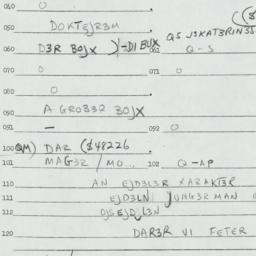 040 O
050 DOKTEJR3M
060 D3R BOJX )-DI BUX 061 Q-S
Q5 J3KAT3RIN35
070 O 071 O
080 O
090 A GRO332R 3OJX
091 — 092 O
100 QM) DAR ($48226
101 MAG3R / MO... 102 Q-AP
110 AN EJD3L3R XARAKT3R
111 EJD3LN JUNG3RMAN
112 EJD L3N
120 DAR3R VI FETER